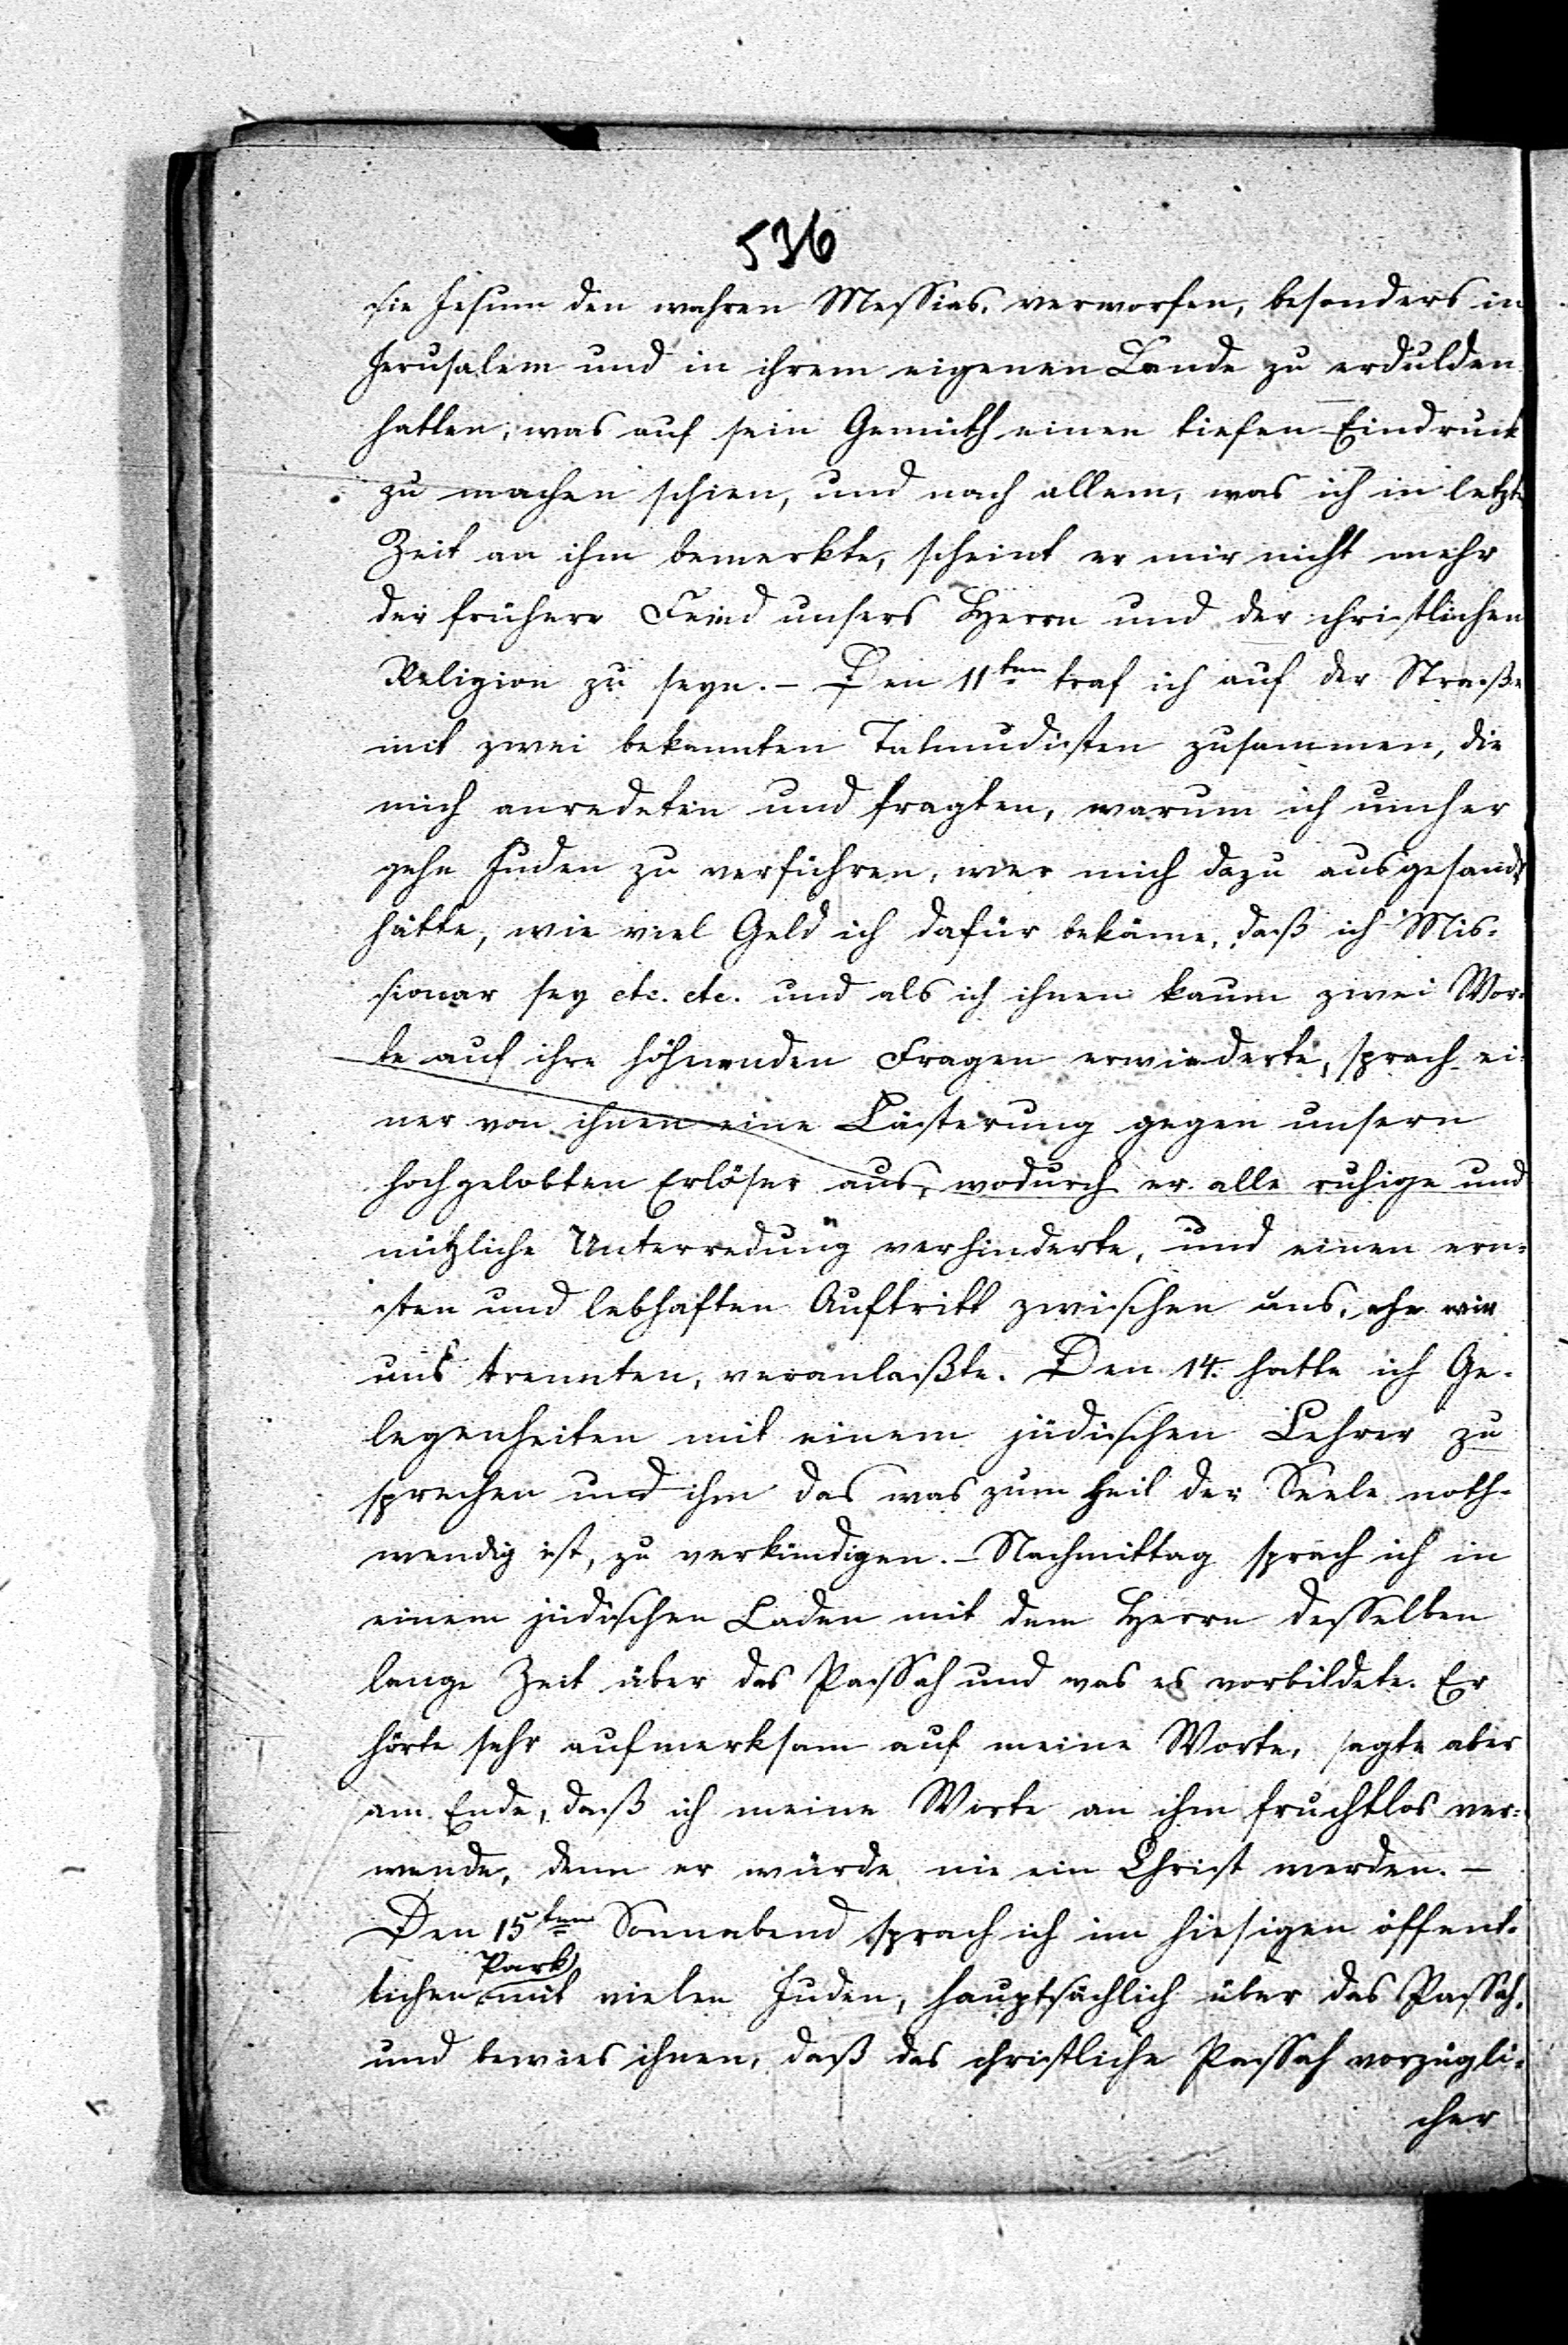 536
sie Jesum den wahren Messias, verworfen, besonders in
Jerusalem und in ihrem eigenen Lande zu erdulden
hatten; was auf sein Gemüth einen tiefen Eindruck
zu machen schien, und nach allem, was ich in letzte
Zeit an ihm bemerkte, scheint er mir nicht mehr
der frühere Feind unsers Herrn und der christlichen
Religion zu seyn. – Den 11ten traf ich auf der Straße
mit zwei bekannten Talmudisten zusammen, die
mich anredeten und fragten, warum ich umher
gehe Juden zu verführen, wer mich dazu ausgesandt
hätte, wie viel Geld ich dafür bekäme, daß ich Mis-
sionar sey etc. etc. und als ich ihnen kaum zwei Wor-
te auf ihre höhnenden Fragen erwiederte, sprach ei-
ner von ihnen eine Lästerung gegen unsern
hochgelobten Erlöser aus, wodurch er alle ruhige und
nützliche Unterredung verhinderte, und einen ern-
sten und lebhaften Auftritt zwischen uns, ehe wir
uns trennten, veranlaßte. Den 14. hatte ich Ge-
legenheiten mit einem jüdischen Lehrer zu
sprechen und ihm das was zum Heil der Seele noth-
wendig ist, zu verkündigen. – Nachmittag sprach ich in
einem jüdischen Laden mit dem Herrn desselben
lange Zeit über das Passah und was es vorbildete. Er
hörte sehr aufmerksam auf meine Worte, sagte aber
am Ende, daß ich meine Worte an ihm fruchtlos ver-
wende, denn er würde nie ein Christ werden. –
Den 15ten Sonnabend sprach ich im hiesigen öffent-
lichen Park mit vielen Juden, hauptsächlich über das Passah,
und bewies ihnen, daß das christliche Passah vorzügli-
cher